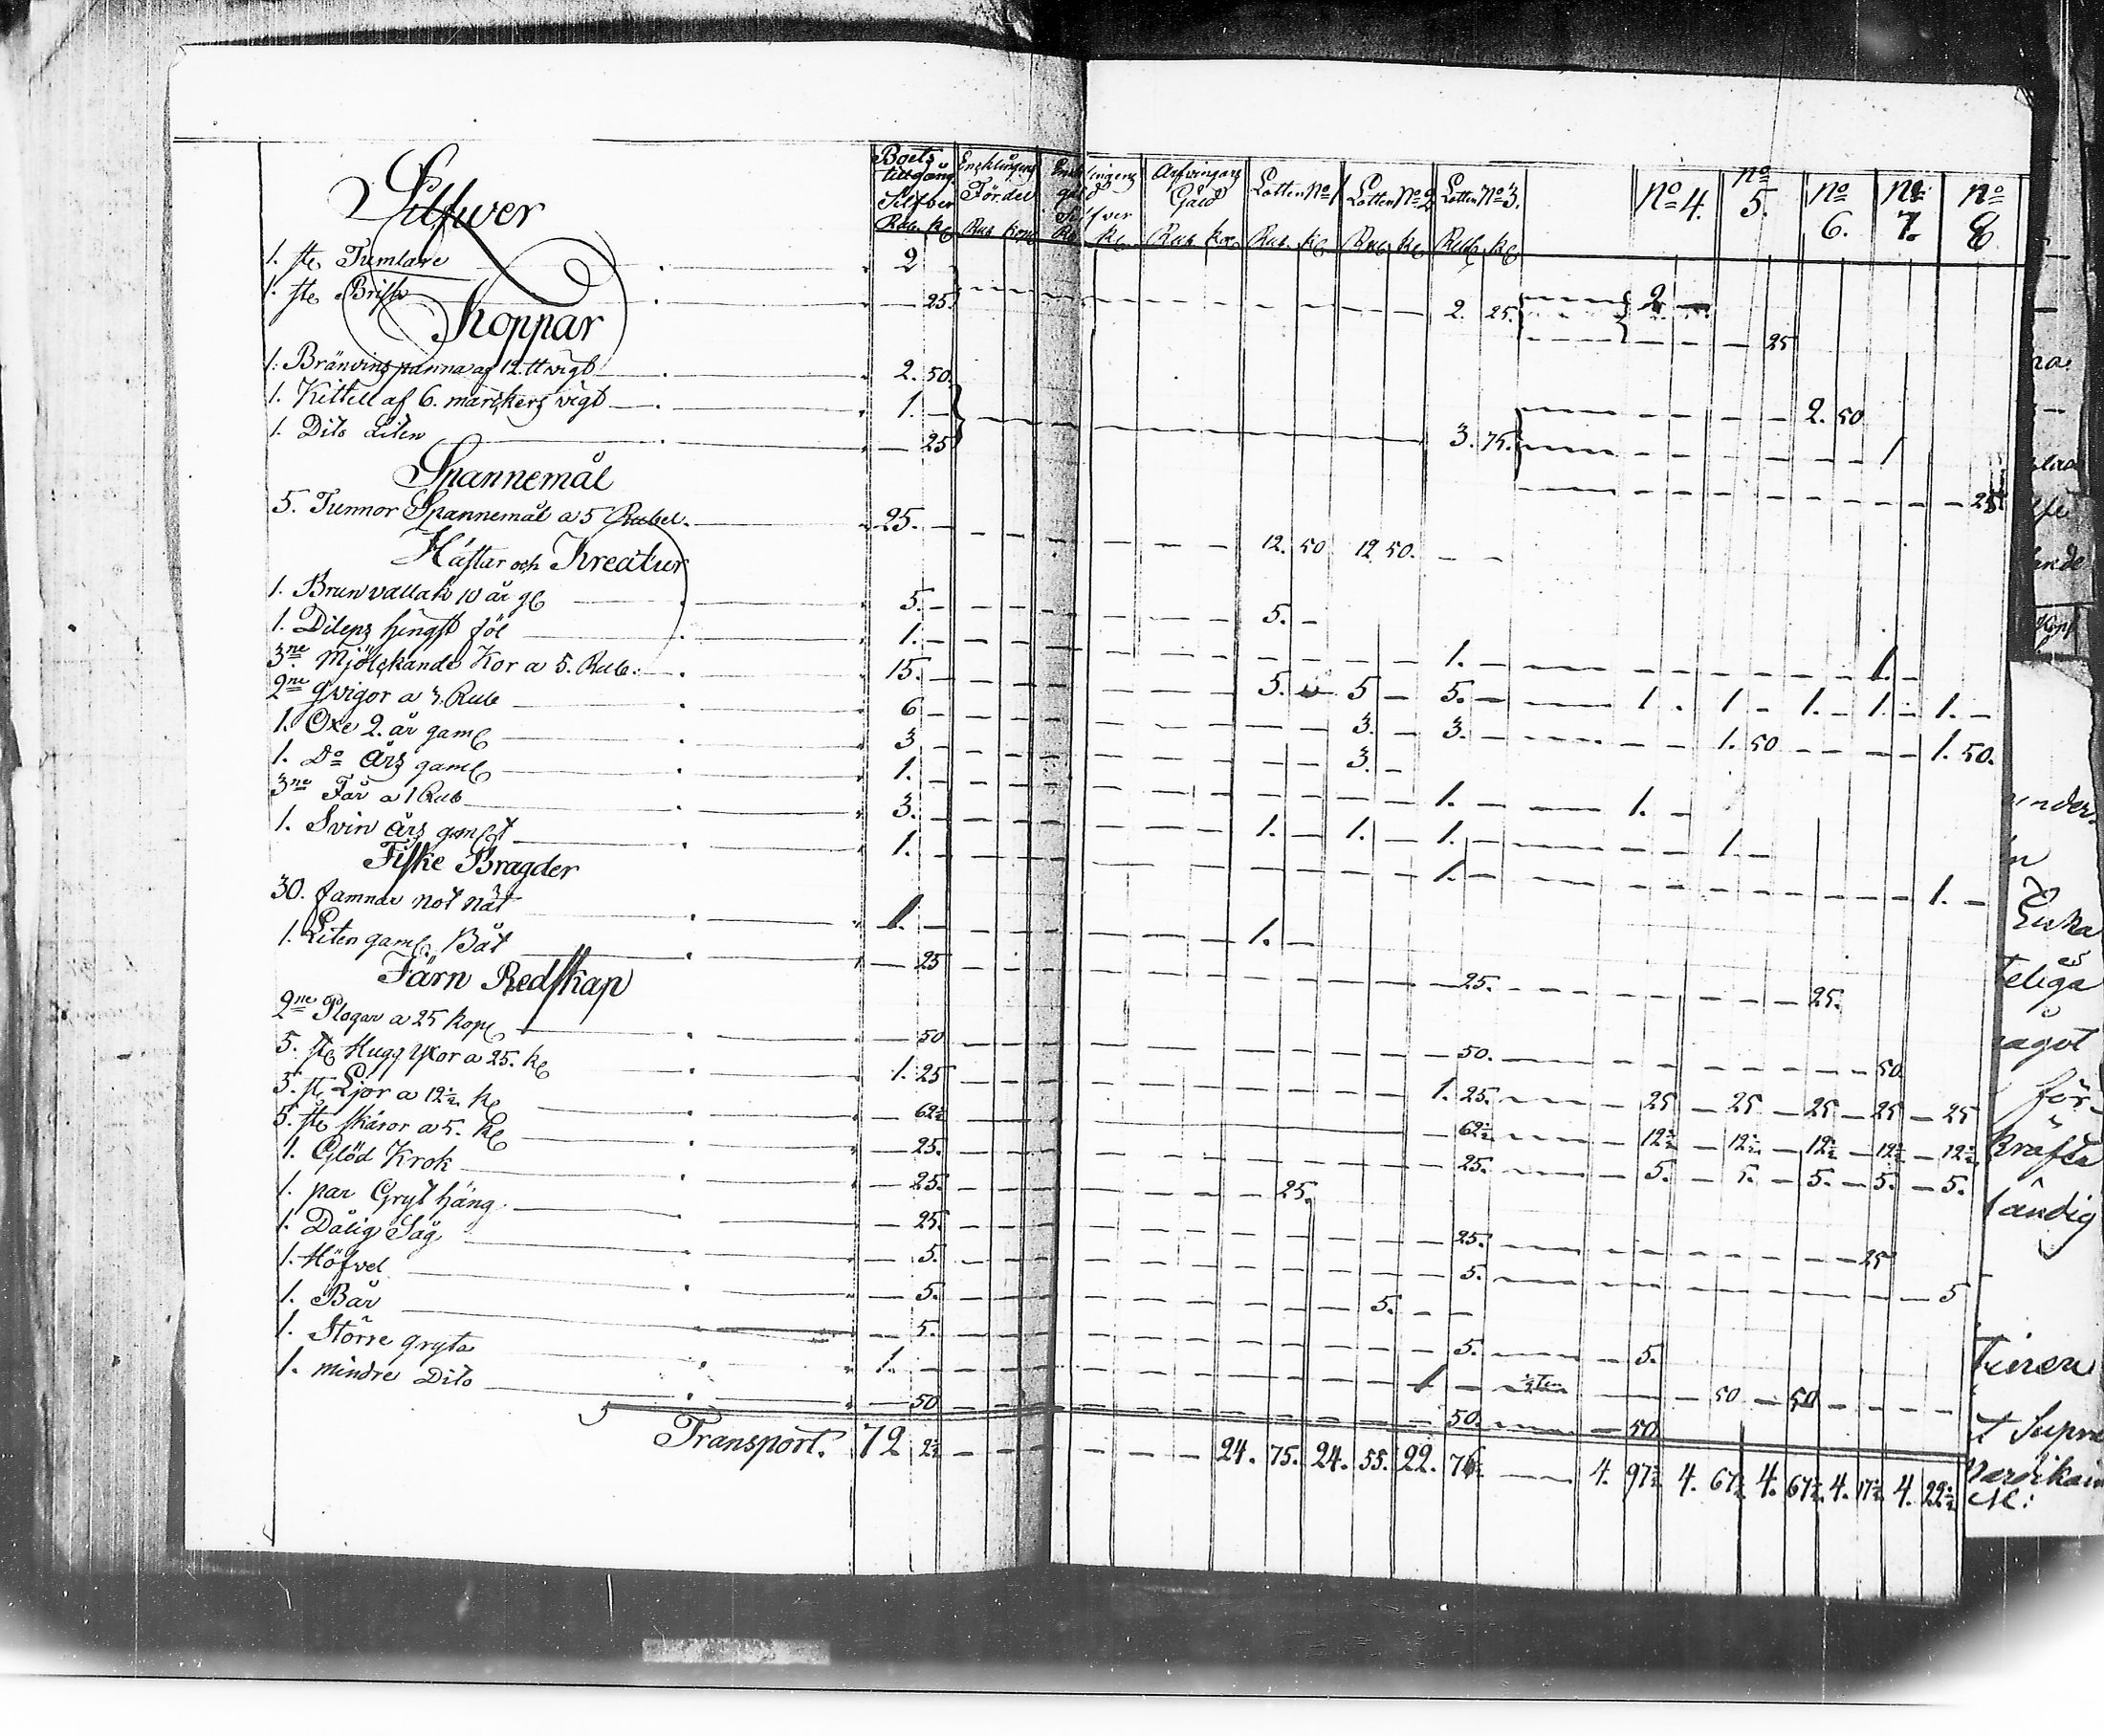 Boets tillgång Silfver Rub. Kc | Enchlingens Fördel Rub Kope | Rub Kc | Arfvingars Gäld Rub Kop | Lotten No 1 Rub. Kc | Lotten No 2 Rub Kc | Lotten No 3. Rub Kc | No 4. | No 5. | No 6. | No 7. | No 8
Silfwer
1. ste Tumlare 2
1. ste Brisk — 25 2. 25. 2 — 25
Koppar
1. Bränvins panna af 12. tt vigt 2. 50. 2. 50
1. Kittell af 6. marckers vigt 1. — 3. 75. 1
1. Dito Liten — 25 25
Spannemål
5. Tunnor Spannemål a 5 Rubel. 25. — 12. 50 12 50. — —
Hästar och Kreatur
1. Brun vallak 10 år gl 5. — 5. —
1. Ditens hingst föl 1. — 1. — 1. —
3ne Mjölckande Kor a 5. Rub. 15. — 5. — 5 — 5. — 1. 1. — 1. — 1. — 1. —
2ne qvigor a 3. Rub 6 — 3. — 3. — 1. 50 1. 50.
1. Oxe 2. år gaml 3 — 3. —
1. Do års gaml 1. — 1. — 1. —
3ne Får a 1 Rub 3. — 1. — 1. — 1. — 1. —
1. Svin års gamlt 1. — 1. — 1. —
Fiske Bragder
30. famnar not nät 1. — 1. —
1. Liten gaml. Båt — 25 25. 25.
Järn Redskap
2ne Plogar a 25 kope — 50 50. 50
5. ste Hugg Yxor a 25. kc 1. 25 1. 25. 25 — 25 — 25 — 25 — 25
5. st Ljor a 12½ kc — 62½ — 62½ 12½ — 12½ — 12½ — 12½ — 12½
5. ste skäror a 5. kc — 25. 25. 5. — 5. — 5. — 5. — 5.
1. Glöd Krok — 25. 25.
1. par Gryt häng — 25. 25. 25
1. Dålig Såg — 5. 5. 5
1. Höfvel — 5. 5. — —
1. Bår — 5. 5. 5.
1. Större gryta 1. — 1 — 50 — 50
1. mindre Dito — 50 50. 50
Transport. 72 2½ 24. 75. 24. 55. 22. 4. 97½ 4. 67½ 4. 67½ 4. 17½ 4. 22½